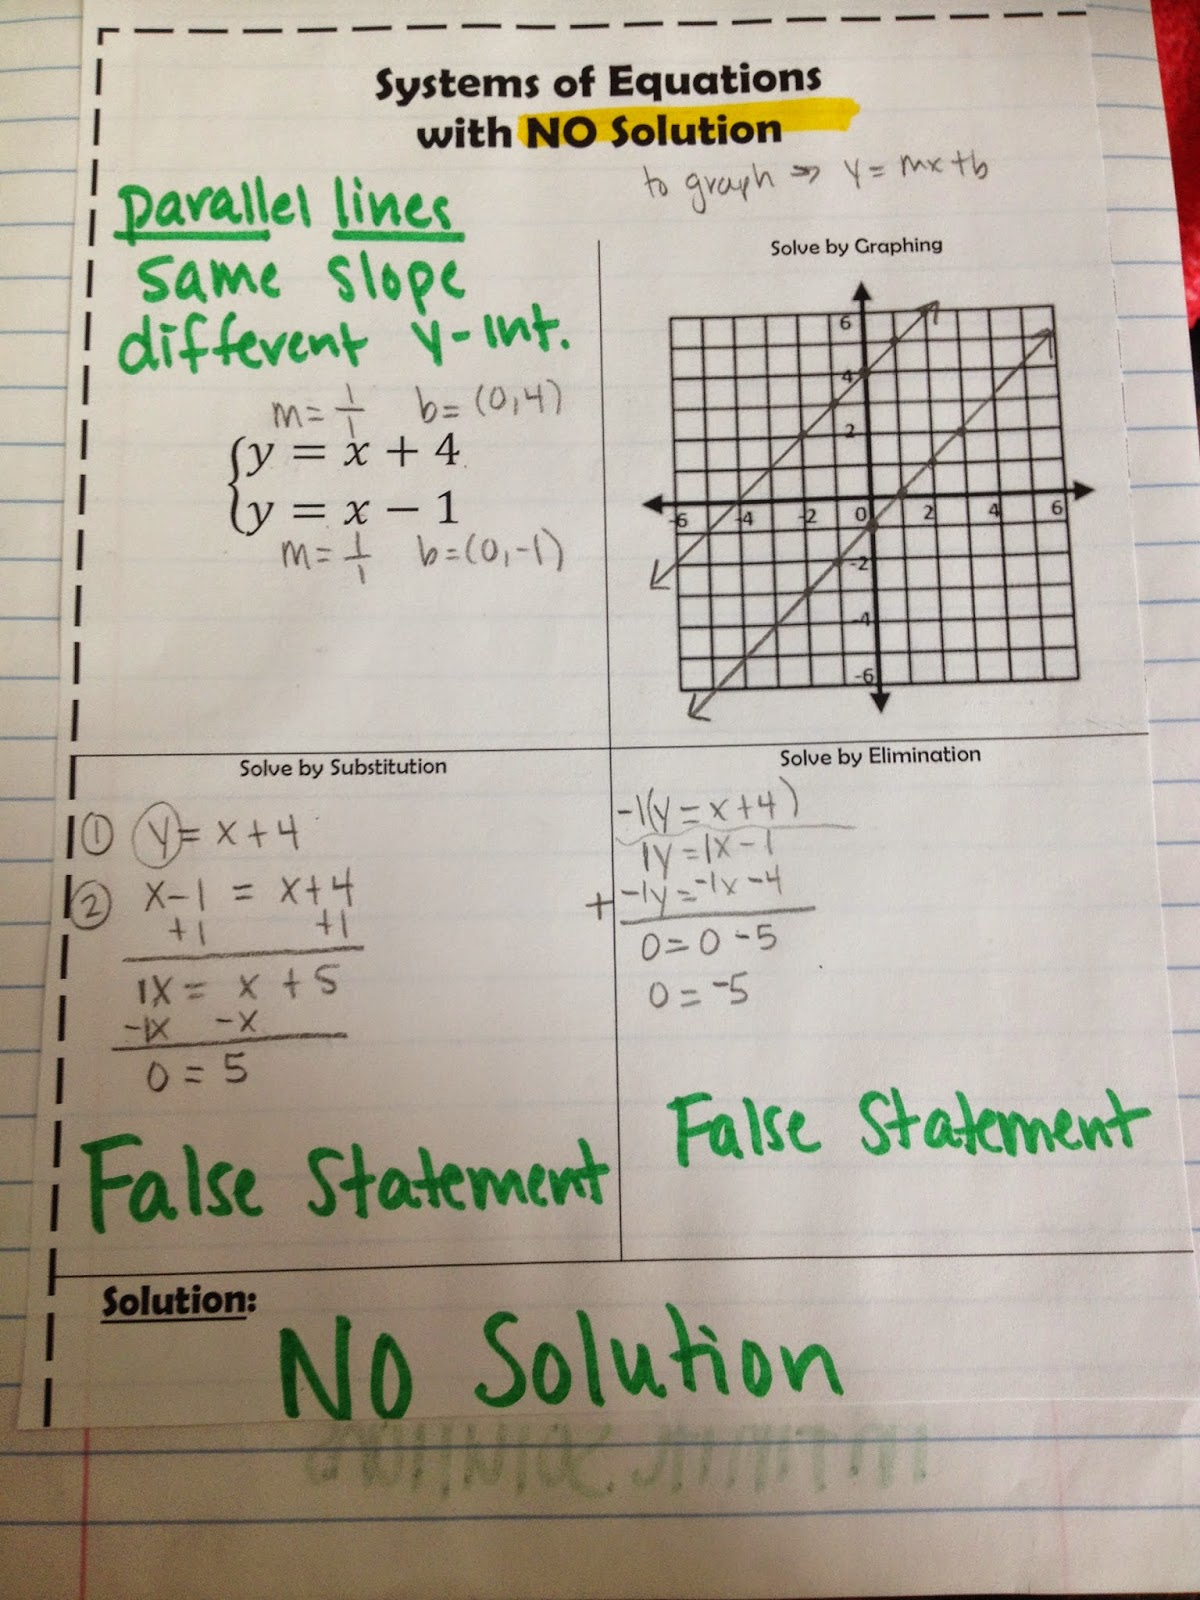 Systems of Equations
with NO Solution
to graph ⇒ y = mx+b
parallel lines
same slope
different y-int.
m = 1/1 b = (0,4)
{y = x + 4
{y = x − 1
m = 1/1 b = (0,-1)
Solve by Graphing
6
4
2
-6 -4 -2 0 2 4 6
-2
-4
-6
Solve by Substitution
① y = x + 4
② x-1 = x+4
+1 +1
1x = x + 5
-1x -x
0 = 5
False Statement
Solve by Elimination
-1(y = x+4)
1y = 1x - 1
+ -1y = -1x - 4
0 = 0 - 5
0 = -5
False Statement
Solution:
NO Solution